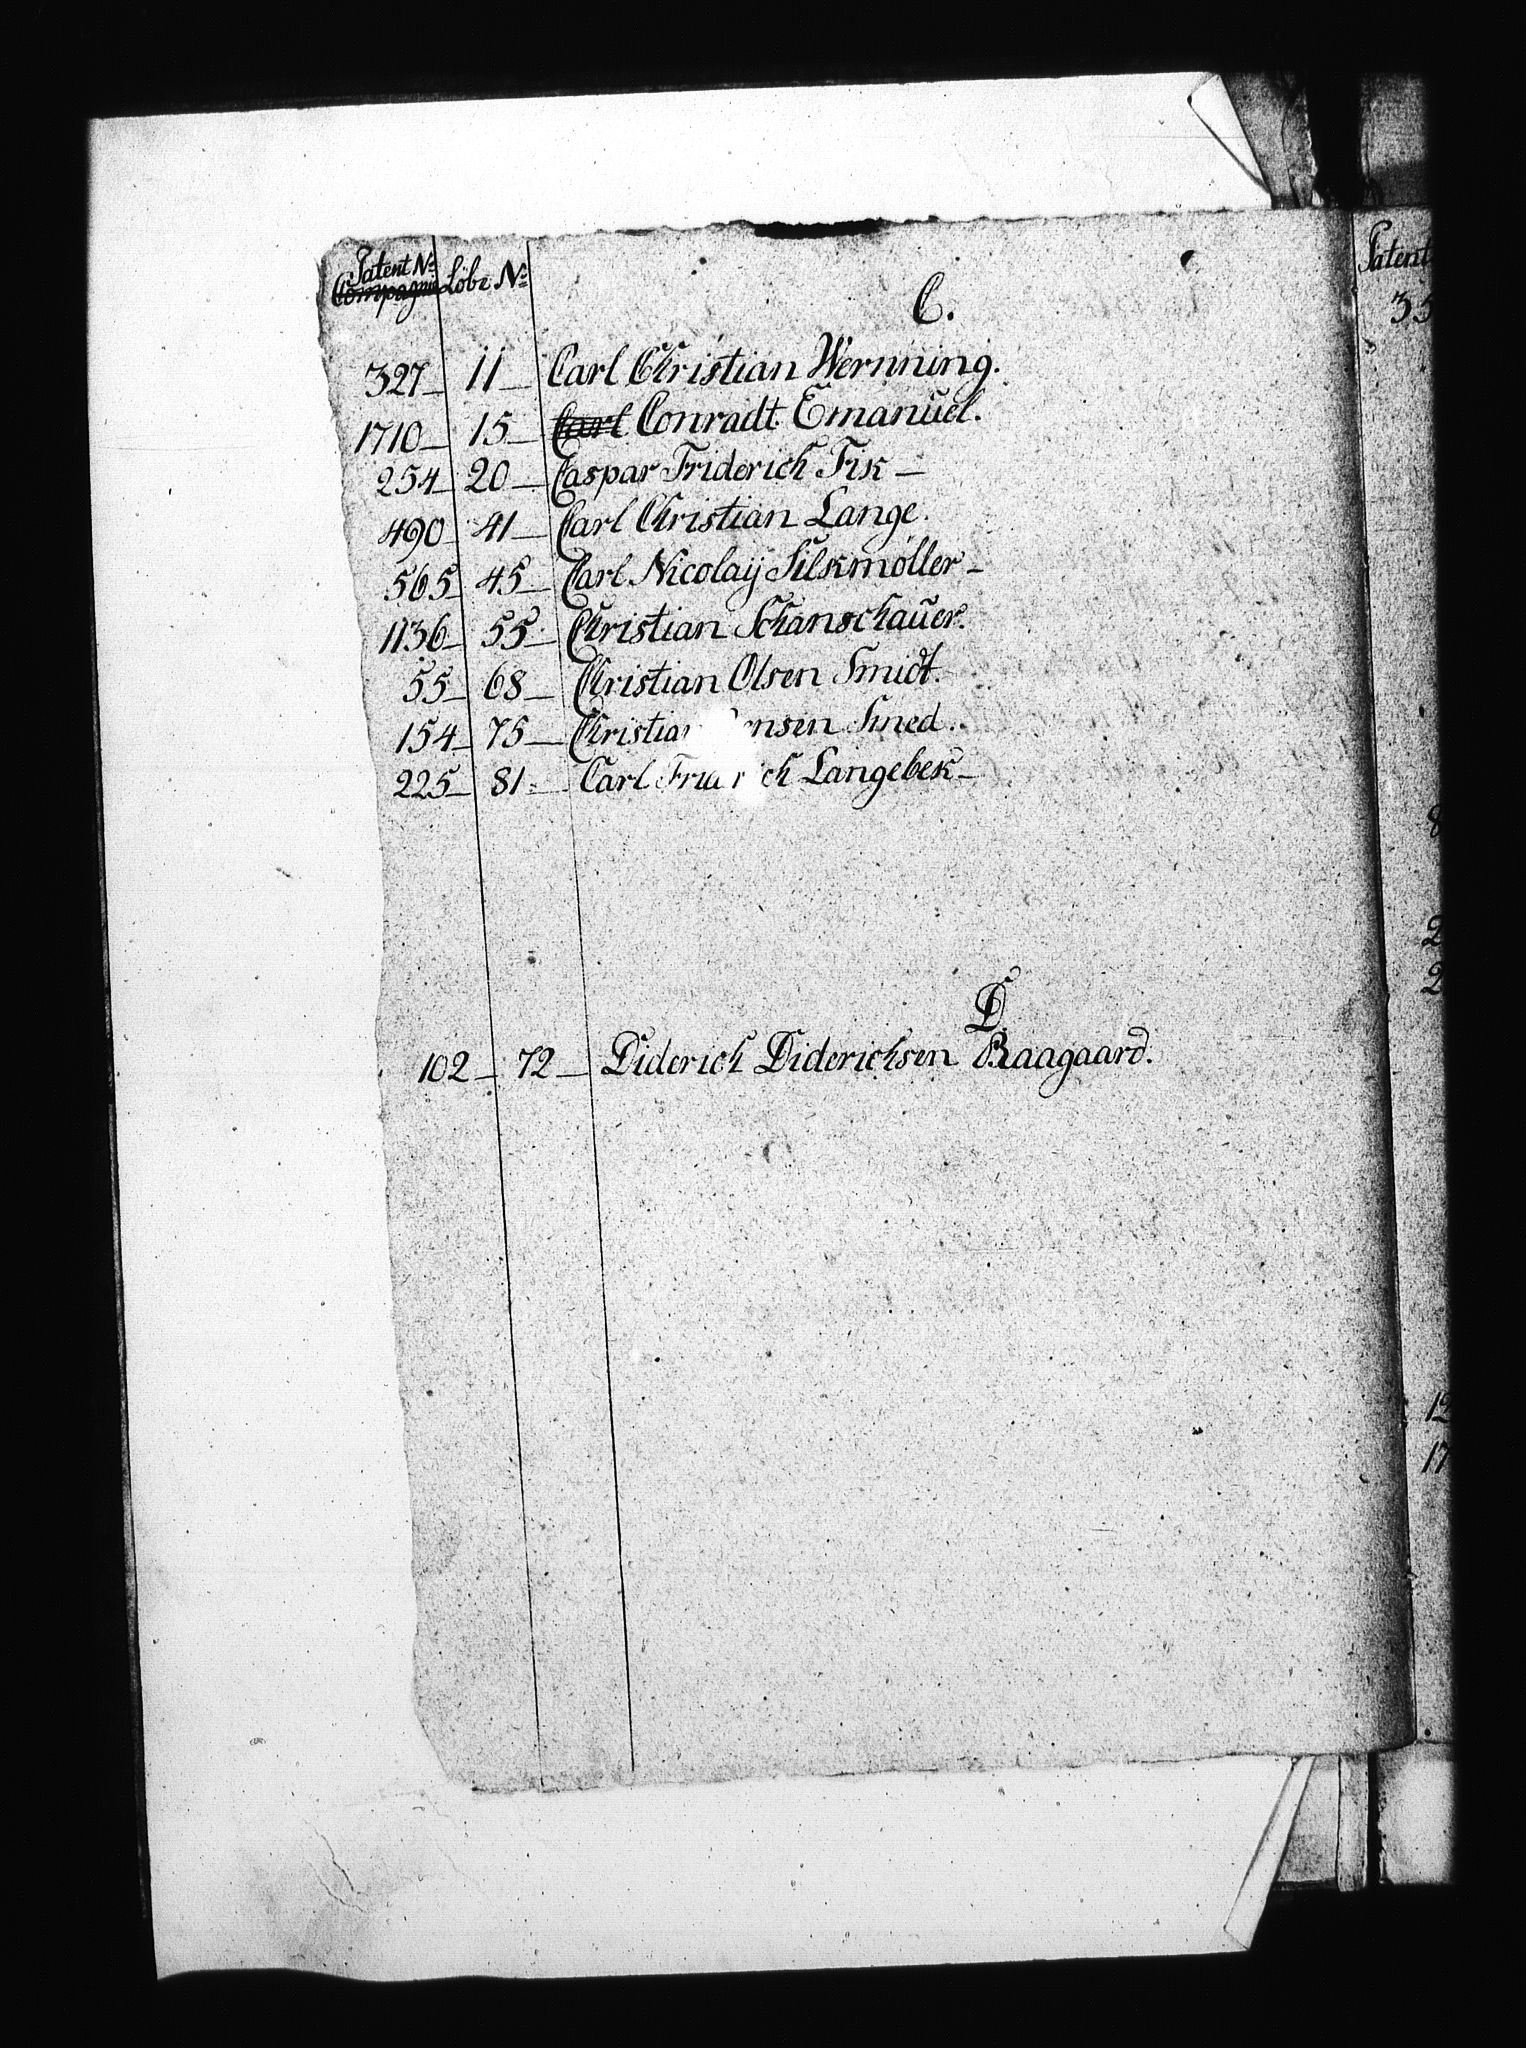 Patent No
Compagnie Løbe No
C.
327 11 Carl Christian Wernning.
1710 15 Carl Conradt Emanuel.
254 20 Caspar Friderich Fisk
490 41 Carl Christian Lange.
565 45 Carl Nicolaÿ Silkmøller
1136 55 Christian Schanschauer.
55 68 Christian Olsen Smidt.
154 75 Smed.
225 81 Carl Langebek
D.
102 72 Diderich Diderichsen Raagaard.
Patent